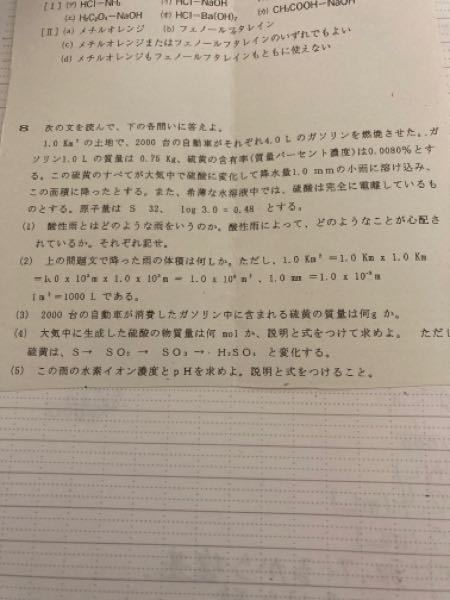 [Ⅰ] (ア) HCl−NH₃ (イ) HCl−NaOH CH₃COOH−NaOH
(エ) H₂C₂O₄−NaOH (オ) HCl−Ba(OH)₂ (カ)
[Ⅱ] (a) メチルオレンジ (b) フェノールフタレイン
(c) メチルオレンジまたはフェノールフタレインのいずれでもよい
(d) メチルオレンジもフェノールフタレインもともに使えない
8 次の文を読んで、下の各問いに答えよ。
1.0 Km²の土地で、2000 台の自動車がそれぞれ4.0 Lのガソリンを燃焼させた。ガ
ソリン1.0 Lの質量は 0.75 Kg、硫黄の含有率(質量パーセント濃度)は0.0080%とす
る。この硫黄のすべてが大気中で硫酸に変化して降水量1.0 mmの小雨に溶け込み、
この面積に降ったとする。また、希薄な水溶液中では、硫酸は完全に電離しているも
のとする。原子量は S 32、 log 3.0 = 0.48 とする。
(1) 酸性雨とはどのような雨をいうのか。酸性雨によって、どのようなことが心配さ
れているか。それぞれ記せ。
(2) 上の問題文で降った雨の体積は何Lか。ただし、1.0 Km² =1.0 Km x 1.0 Km
=1.0 x 10³m x 1.0 x 10³m = 1.0 x 10⁶ m²、1.0 mm =1.0 x 10⁻³m
1m³=1000 L である。
(3) 2000 台の自動車が消費したガソリン中に含まれる硫黄の質量は何g か。
(4) 大気中に生成した硫酸の物質量は何 mol か、説明と式をつけて求めよ。 ただし
硫黄は、S→ SO₂ → SO₃ → H₂SO₄ と変化する。
(5) この雨の水素イオン濃度とpHを求めよ。説明と式をつけること。